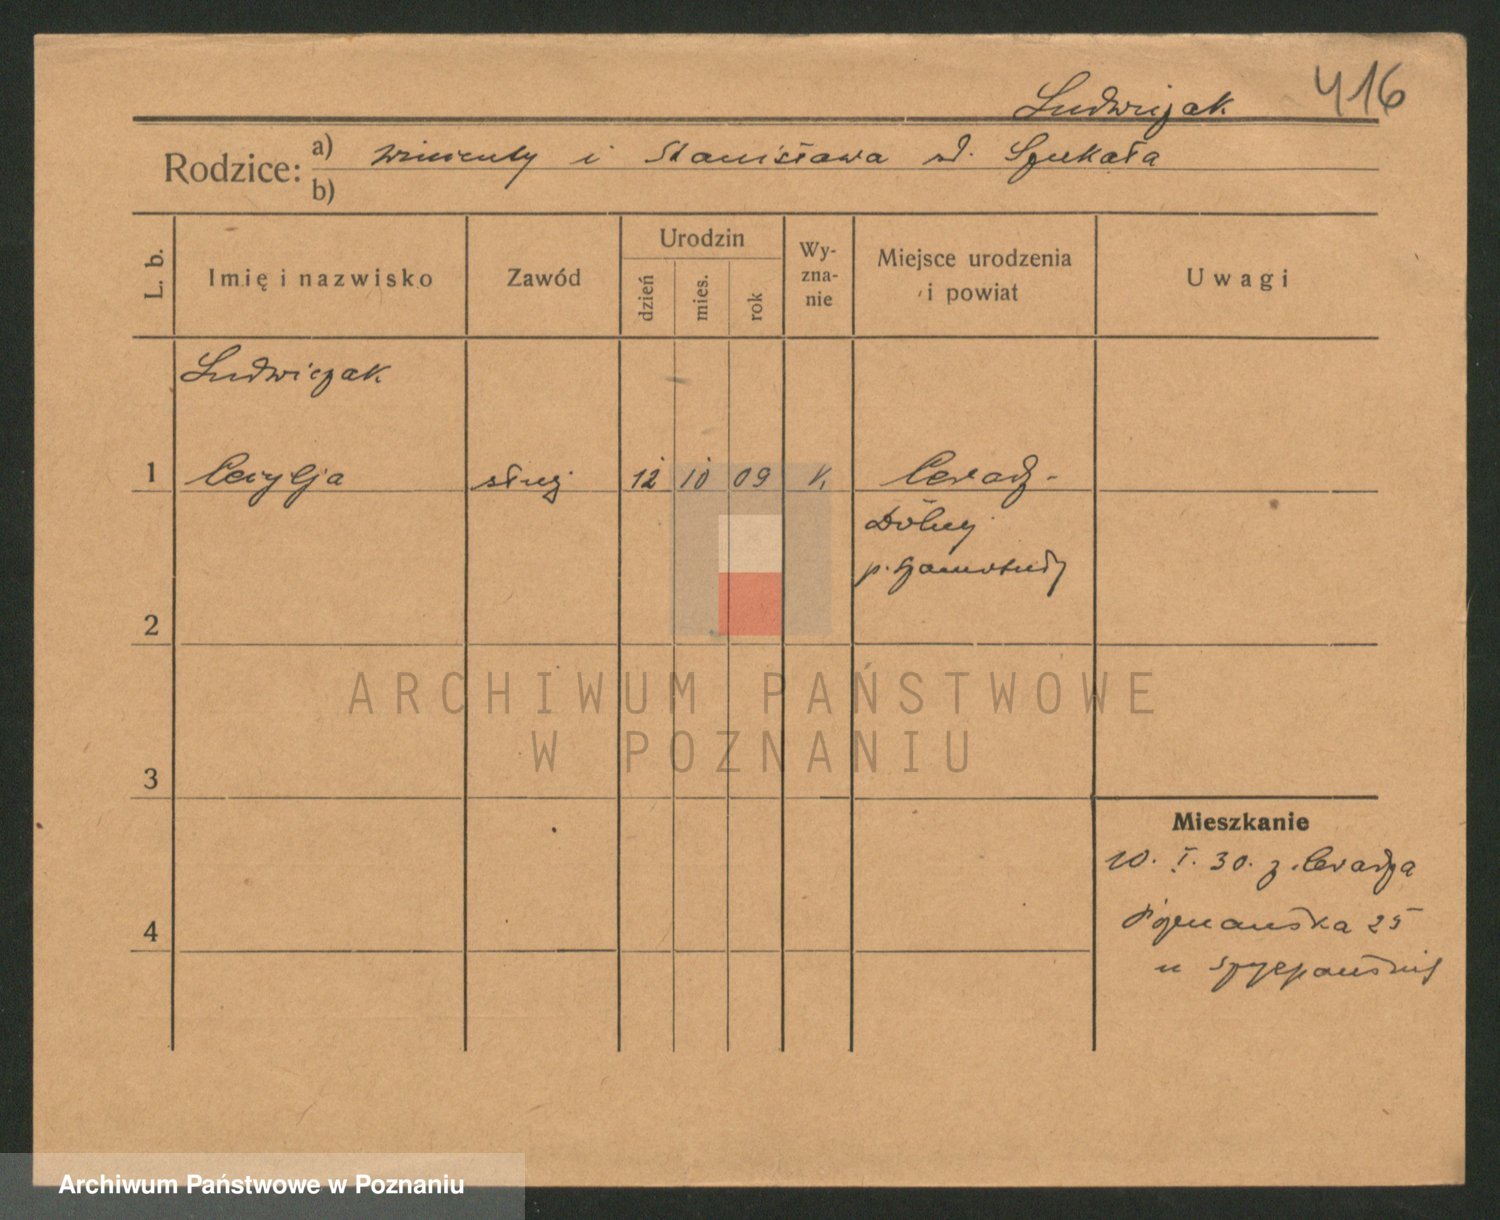 416
Ludwiczak
Rodzice:
a) Wincenty i Stanisława d. Szukała
b)
L. b.
Imię i nazwisko
Zawód
Urodzin
dzień
mies.
rok
Wy-
zna-
nie
Miejsce urodzenia
i powiat
Uwagi
Ludwiczak
1 Cecylja służ 12 10 09 k. Ceradz-
Dolny
p. Szamotuły
2
3
4
Mieszkanie
10. I. 30. z. Ceradza
Poznańska 25
u
ARCHIWUM PAŃSTWOWE
W POZNANIU
Archiwum Państwowe w Poznaniu